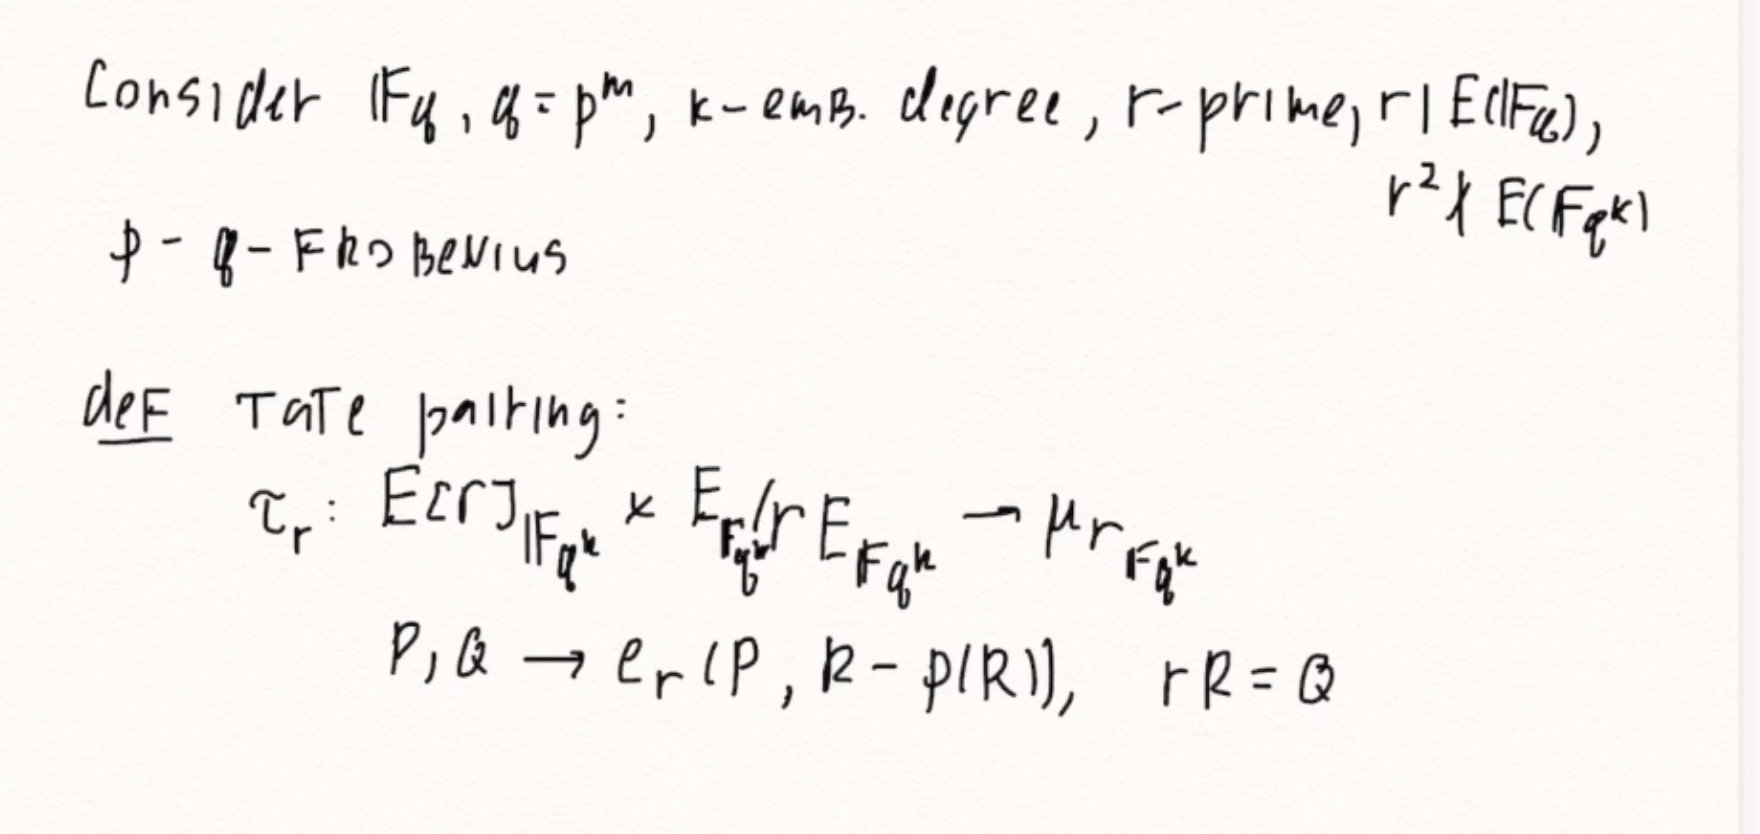 Consider 𝔽_q, q = p^m, k - emb. degree, r - prime, r | E(𝔽_q),
r² ∤ E(F_{q^k})
ϕ - q - Frobenius
def Tate pairing:
τ_r : E[r]_{𝔽_{q^k}} × E_{F_{q^k}} / r E_{F_{q^k}} → μ_{r F_{q^k}}
P, Q → e_r (P, R - ϕ(R)), rR = Q